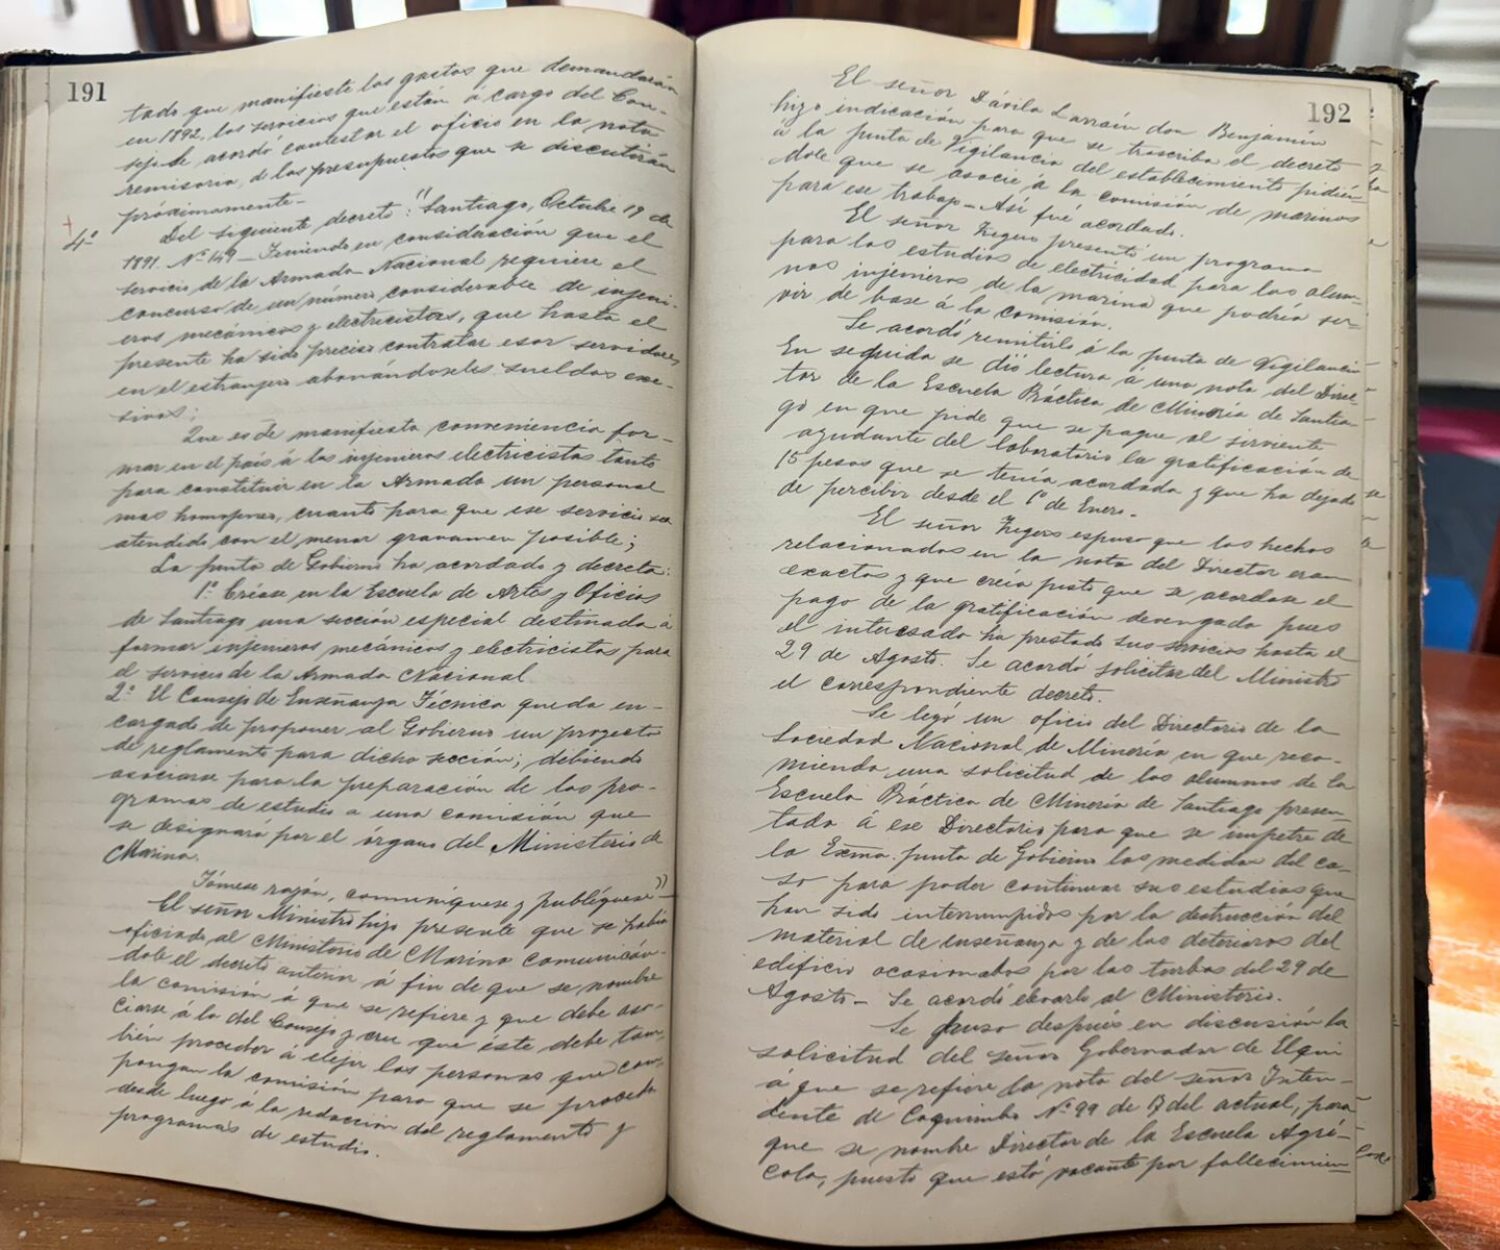 191
tado que manifieste los gastos que demandarán
en 1892, los servicios que están á cargo del Con-
sejo se acordó contestar el oficio en la nota
remisoria de los presupuestos que se discutirán
próximamente.
4º Del siguiente decreto: "Santiago, Octubre 19 de
1891. Nº 149 — Teniendo en consideración que el
servicio de la Armada Nacional requiere el
concurso de un número considerable de injeni-
eros mecánicos y electricistas, que hasta el
presente ha sido preciso contratar esos servidores
en el estranjero abonándoseles sueldos exce-
sivos;
Que es de manifiesta conveniencia for-
mar en el país á los injenieros electricistas tanto
para constituir en la Armada un personal
mas homojeneo, cuanto para que ese servicio sea
atendido con el menor gravamen posible;
La Junta de Gobierno ha acordado y decreta:
1º Créase en la Escuela de Artes y Oficios
de Santiago una sección especial destinada á
formar injenieros mecánicos y electricistas para
el servicio de la Armada Nacional
2º El Consejo de Enseñanza Técnica queda en-
cargado de proponer al Gobierno un proyecto
de reglamento para dicha sección; debiendo
asociarse para la preparación de los pro-
gramas de estudio a una comisión que
se designará por el órgano del Ministerio de
Marina.
Tómese razón, comuníquese y publíquese"—
El señor Ministro hizo presente que se había
oficiado al Ministerio de Marina comunicán-
dole el decreto anterior á fin de que se nombre
la comisión á que se refiere y que debe aso-
ciarse á la del Consejo y cree que éste debe tam-
bién proceder á elejir las personas que com-
pongan la comisión para que se proceda
desde luego á la redacción del reglamento y
programas de estudio.
192
El señor Dávila Larraín don Benjamín
hizo indicación para que se trascriba el decreto
á la Junta de Vigilancia del establecimiento pidién-
dole que se asocie á la comisión de marinos
para ese trabajo — Así fué acordado.
El señor Zegers presentó un programa
para los estudios de electricidad para los alum-
nos injenieros de la marina que podría ser-
vir de base á la comisión.
Se acordó remitirlo á la Junta de Vigilancia
En seguida se dió lectura á una nota del Direc-
tor de la Escuela Práctica de Minería de Santia-
go en que pide que se pague al sirviente
ayudante del laboratorio la gratificación de
15 pesos que se tenía acordada y que ha dejado
de percibir desde el 1º de Enero.
El señor Zegers espuso que los hechos
relacionados en la nota del Director eran
exactos y que creía justo que se acordase el
pago de la gratificación devengada pues
el interesado ha prestado sus servicios hasta el
29 de Agosto. Se acordó solicitar del Ministro
el correspondiente decreto.
Se leyó un oficio del Directorio de la
Sociedad Nacional de Minería en que reco-
mienda una solicitud de los alumnos de la
Escuela Práctica de Minería de Santiago presen-
tada á ese Directorio para que se impetre de
la Exma. Junta de Gobierno las medidas del ca-
so para poder continuar sus estudios que
han sido interrumpidos por la destrucción del
material de enseñanza y de los deterioros del
edificio ocasionados por las turbas del 29 de
Agosto — Se acordó elevarlo al Ministerio.
Se puso después en discusión la
solicitud del señor Gobernador de Elqui
á que se refiere la nota del señor Inten-
dente de Coquimbo Nº 99 de 17 del actual, para
que se nombre Director de la Escuela Agrí-
cola, puesto que está vacante por fallecimien